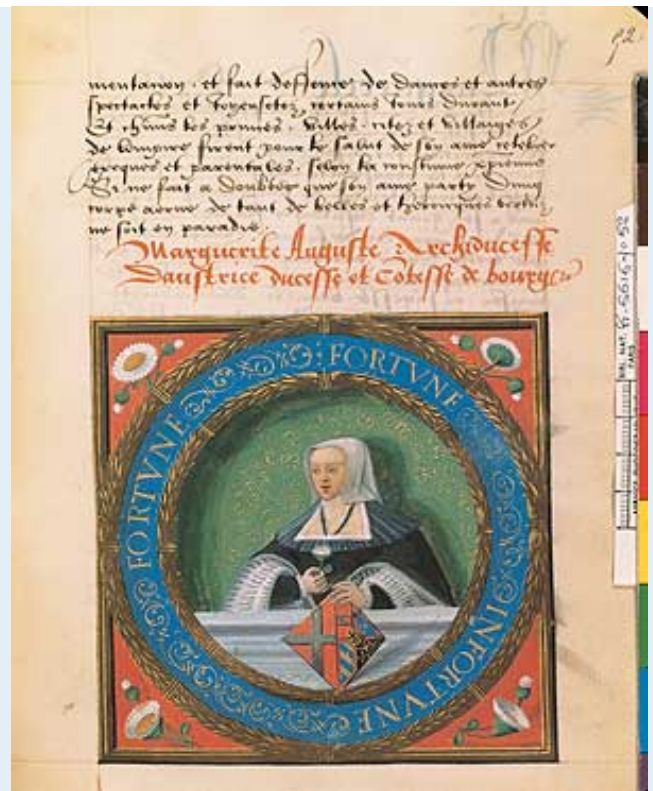 92
mentation · et fait deffence de dames et autres
spectacles et certains Jours durant
Et es villes · citez et villaiges
de firent pour le salut de son ame celebrer
obseques et parentales · selon la coustume xpienne
Si ne fait a doubter que son ame party dung
corps aorne de tant de belles et heroicques vertuz
ne soit en paradis
Marguerite Auguste Archiducesse
Daustrice ducesse et Cōtesse de bourgōe
FORTVNE
INFORTVNE
FORTVNE
BIBL. NAT.
PARIS